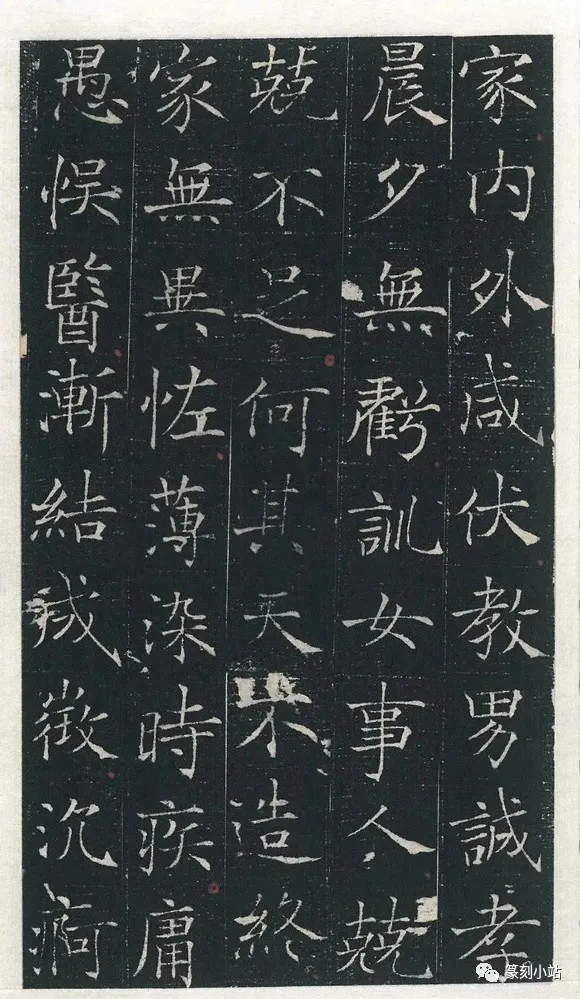 家内外咸伏教男誠孝
晨夕無虧訓女事人兢
兢不足何其天不造終
家無異恠薄染時疾庸
愚悮醫漸結成徵沉痾
篆刻小站